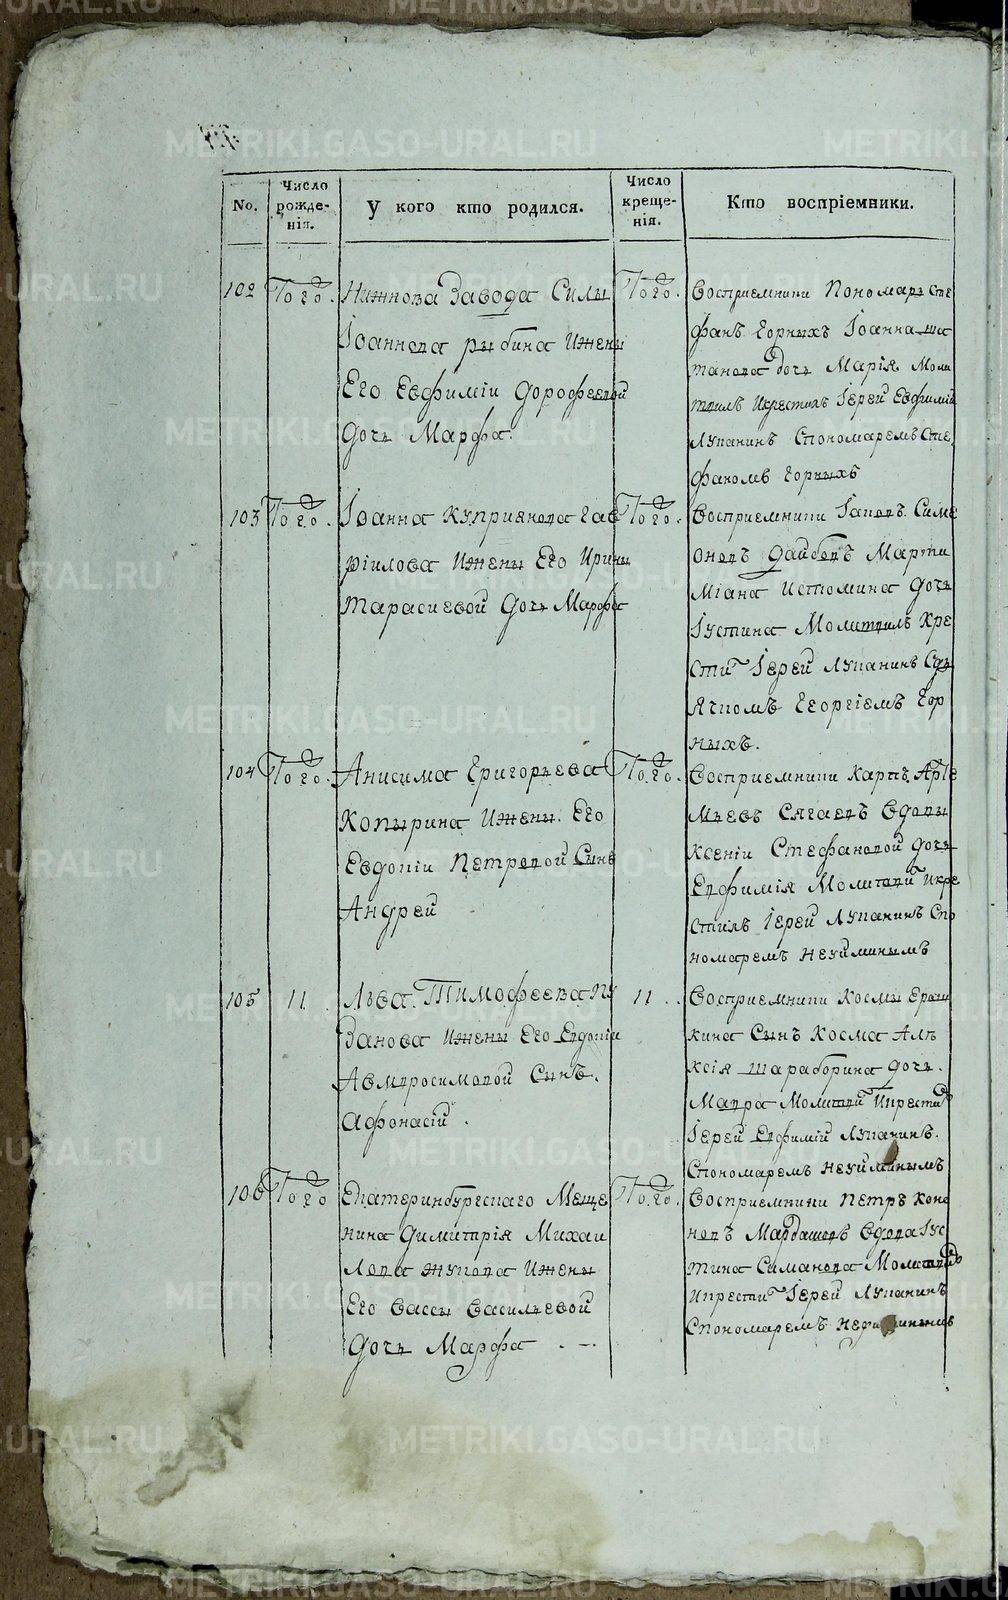 No.
Число рожде-нія.
У кого кто родился.
Число креще-нія.
Кто воспріемники.
102
Того.
Нижнова Завода Силы
Іоаннова рыбина Ижены
Его Евфиміи дорофеевой
дочь Марфа.
Того.
Восприемники Пономарь Сте
фанъ Горныхъ Іоанна
танова дочь Марія Моли
твилъ Икрестилъ Іерей Евфимій
Лупанинъ Спономаремъ Сте
фаномъ Горныхъ
103
Того.
Іоанна Куприянова Гав
ріилова Ижены Его Ирины
Тарасиевой Дочь Марфа
Того.
Восприемники Іаковъ Симе
оновъ Марти
міана Истомина дочь
Іустина Молитвилъ Кре
сти Іерей Лупанинъ Сдь
ячкомъ Георгіемъ Гор
ныхъ.
104
Того.
Анисима Григорьева
Копырина Ижены Его
Евдокіи Петровой Сынъ
Андрей
Того.
Восприемники Карпъ Арте
мьевъ Вдовы
Ксеніи Стефановой дочь
Евфимія Молитвил Икре
стилъ Іерей Лупанинъ Спо
номаремъ Неуйминымъ
105
11
Льва Тимофеева Пу
Занова Ижены Его Евдокіи
Амвросимовой Сынъ.
Афонасій.
11.
Восприемники Космы
кина Сынъ Косма Але
ксія Шараборина дочь.
Мавра Молитвил Икрестил
Іерей Евфимій Лупанинъ.
Спономаремъ Неуйминымъ
106
Того
Екатеринбургскаго Меще
нина Димитрія Михаи
лова Жукова Ижены
Его Вассы Васильевой
Дочь Марфа
Того.
Восприемники Петръ Коно
новъ Мардашовъ Вдова Іус
тина Симанова Молитвилъ
Икрести Іерей Лупанинъ
Спономаремъ Неуйминымъ
METRIKI.GASO-URAL.RU